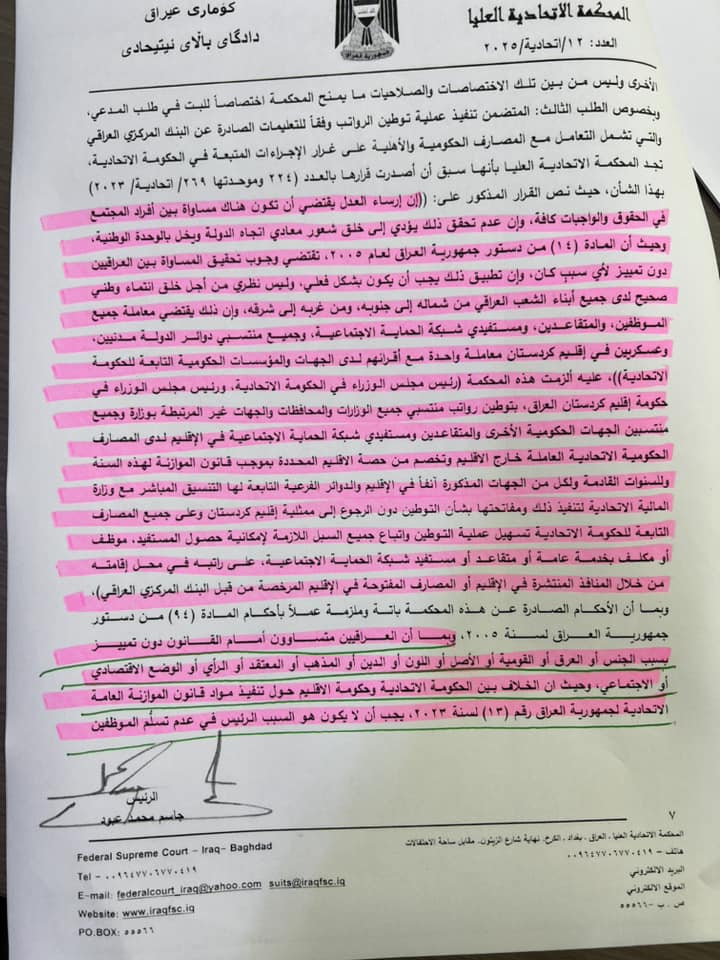 كۆماری عیراق
دادگای باڵای ئیتیحادی
جمهورية العراق
المحكمة الاتحادية العليا
العدد: ١٢/اتحادية/٢٠٢٥
الأخرى وليس من بين تلك الاختصاصات والصلاحيات ما يمنح المحكمة اختصاصاً للبت في طلب المدعي،
وبخصوص الطلب الثالث: المتضمن تنفيذ عملية توطين الرواتب وفقاً للتعليمات الصادرة عن البنك المركزي العراقي
والتي تشمل التعامل مع المصارف الحكومية والأهلية على غرار الإجراءات المتبعة في الحكومة الاتحادية،
تجد المحكمة الاتحادية العليا بأنها سبق أن أصدرت قرارها بالعدد (٢٢٤ وموحدتها ٢٦٩/ اتحادية/ ٢٠٢٣)
بهذا الشأن، حيث نص القرار المذكور على: ((إن إرساء العدل يقتضي أن تكون هناك مساواة بين أفراد المجتمع
في الحقوق والواجبات كافة، وإن عدم تحقق ذلك يؤدي إلى خلق شعور معادي اتجاه الدولة ويخل بالوحدة الوطنية،
وحيث أن المادة (١٤) من دستور جمهورية العراق لعام ٢٠٠٥، تقتضي وجوب تحقيق المساواة بين العراقيين
دون تمييز لأي سبب كان، وإن تطبيق ذلك يجب أن يكون بشكل فعلي، وليس نظري من أجل خلق انتماء وطني
صحيح لدى جميع أبناء الشعب العراقي من شماله إلى جنوبه، ومن غربه إلى شرقه، وإن ذلك يقتضي معاملة جميع
الموظفين، والمتقاعدين، ومستفيدي شبكة الحماية الاجتماعية، وجميع منتسبي دوائر الدولة مدنيين،
وعسكريين في إقليم كردستان معاملة واحدة مع أقرانهم لدى الجهات والمؤسسات الحكومية التابعة للحكومة
الاتحادية))، عليه ألزمت هذه المحكمة (رئيس مجلس الوزراء في الحكومة الاتحادية، ورئيس مجلس الوزراء في
حكومة إقليم كردستان العراق، بتوطين رواتب منتسبي جميع الوزارات والمحافظات والجهات غير المرتبطة بوزارة وجميع
منتسبين الجهات الحكومية الأخرى والمتقاعدين ومستفيدي شبكة الحماية الاجتماعية في الإقليم لدى المصارف
الحكومية الاتحادية العاملة خارج الاقليم وتخصم من حصة الاقليم المحددة بموجب قانون الموازنة لهذه السنة
وللسنوات القادمة ولكل من الجهات المذكورة آنفاً في الإقليم والدوائر الفرعية التابعة لها التنسيق المباشر مع وزارة
المالية الاتحادية لتنفيذ ذلك ومفاتحتها بشأن التوطين دون الرجوع إلى ممثلية إقليم كردستان وعلى جميع المصارف
التابعة للحكومة الاتحادية تسهيل عملية التوطين واتباع جميع السبل اللازمة لإمكانية حصول المستفيد، موظف
أو مكلف بخدمة عامة أو متقاعد أو مستفيد شبكة الحماية الاجتماعية، على راتبه في محل إقامته
من خلال المنافذ المنتشرة في الإقليم أو المصارف المفتوحة في الإقليم المرخصة من قبل البنك المركزي العراقي)،
وبما أن الأحكام الصادرة عن هذه المحكمة باتة وملزمة عملاً بأحكام المادة (٩٤) من دستور
جمهورية العراق لسنة ٢٠٠٥، وبما أن العراقيين متساوون أمام القانون دون تمييز
بسبب الجنس أو العرق أو القومية أو الأصل أو اللون أو الدين أو المذهب أو المعتقد أو الرأي أو الوضع الاقتصادي
أو الاجتماعي، وحيث ان الخلاف بين الحكومة الاتحادية وحكومة الاقليم حول تنفيذ مواد قانون الموازنة العامة
الاتحادية لجمهورية العراق رقم (١٣) لسنة ٢٠٢٣، يجب أن لا يكون هو السبب الرئيس في عدم تسلّم الموظفين
الرئيس
جاسم محمد عبود
٧
المحكمة الاتحادية العليا . العراق . بغداد . الكرخ. نهاية شارع الزيتون. مقابل ساحة الاحتفالات
هاتف – ٠٠٩٦٤٧٧٠٦٧٧٠٤١٩
البريد الالكتروني
الموقع الالكتروني
ص . ب – ٥٥٥٦٦
Federal Supreme Court – Iraq– Baghdad
Tel – ٠٠٩٦٤٧٧٠٦٧٧٠٤١٩
E-mail: federalcourt_iraq@yahoo.com suits@iraqfsc.iq
Website: www.iraqfsc.iq
PO.BOX: ٥٥٥٦٦